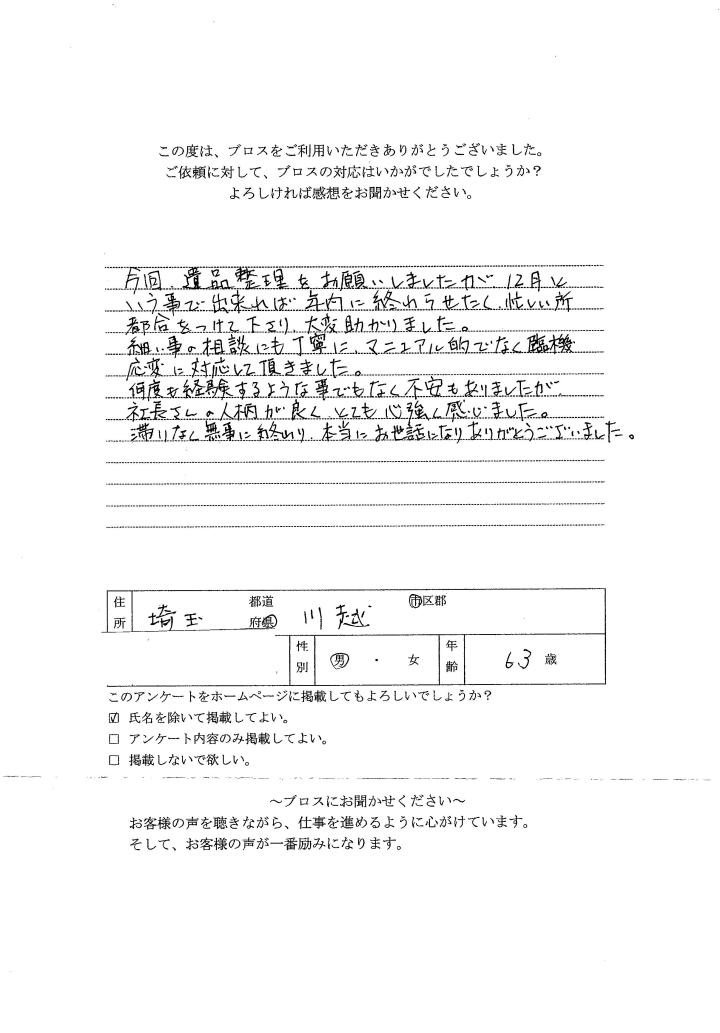 この度は、ブロスをご利用いただきありがとうございました。
ご依頼に対して、ブロスの対応はいかがでしたでしょうか？
よろしければ感想をお聞かせください。
今回、遺品整理をお願いしましたが、12月と
いう事で出来れば年内に終わらせたく、忙しい所
都合をつけて下さり、大変助かりました。
細い事の相談にも丁寧に、マニュアル的でなく臨機
応変に対応して頂きました。
何度も経験するような事でもなく不安もありましたが、
社長さんの人柄が良く とても心強く感じました。
滞りなく無事に終わり、本当にお世話になりありがとうございました。
住所 埼玉 都道府県 川越 市区郡
性別 男 ・ 女 年齢 63 歳
このアンケートをホームページに掲載してもよろしいでしょうか？
☑ 氏名を除いて掲載してよい。
□ アンケート内容のみ掲載してよい。
□ 掲載しないで欲しい。
～ブロスにお聞かせください～
お客様の声を聴きながら、仕事を進めるように心がけています。
そして、お客様の声が一番励みになります。